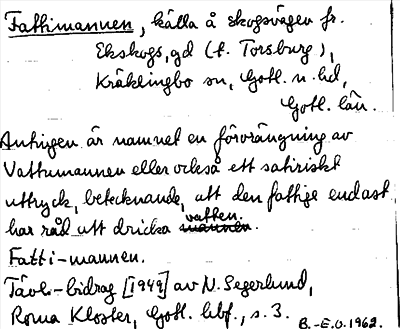 Fattimannen, källa å skogsvägen fr.
Ekskogs, gd (t. Torsburg),
Kräklingbo sn, Gotl. n. hd,
Gotl. län.
Antingen är namnet en förvrängning av
Vattumannen eller också ett satiriskt
uttryck, betecknande, att den fattige endast
har råd att dricka vatten.
Fatti-mannen.
Tävl.-bidrag [1949] av N. Segerlund,
Roma Kloster, Gotl. hbf., s. 3.
B.-E.O. 1962.